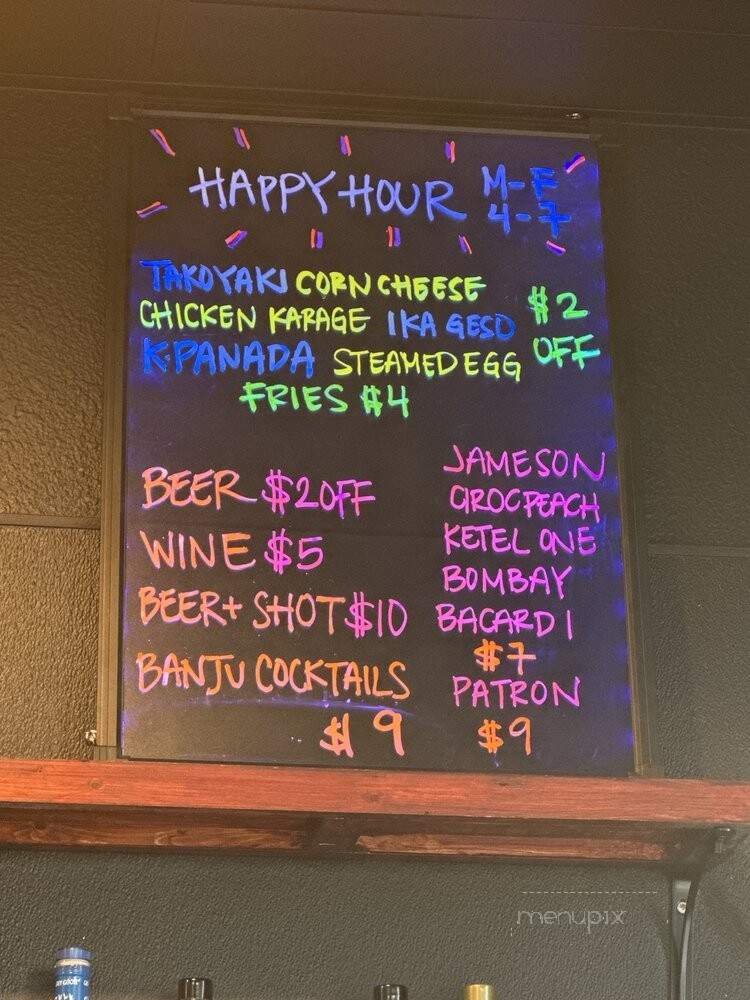 HAPPY HOUR M-F
4-7
TAKOYAKI CORN CHEESE
CHICKEN KARAGE IKA GESO $2
K-PANADA STEAMED EGG OFF
FRIES $4
BEER $2 OFF
WINE $5
BEER + SHOT $10
BANJU COCKTAILS
$9
JAMESON
CIROC PEACH
KETEL ONE
BOMBAY
BACARDI
$7
PATRON
$9
menupix